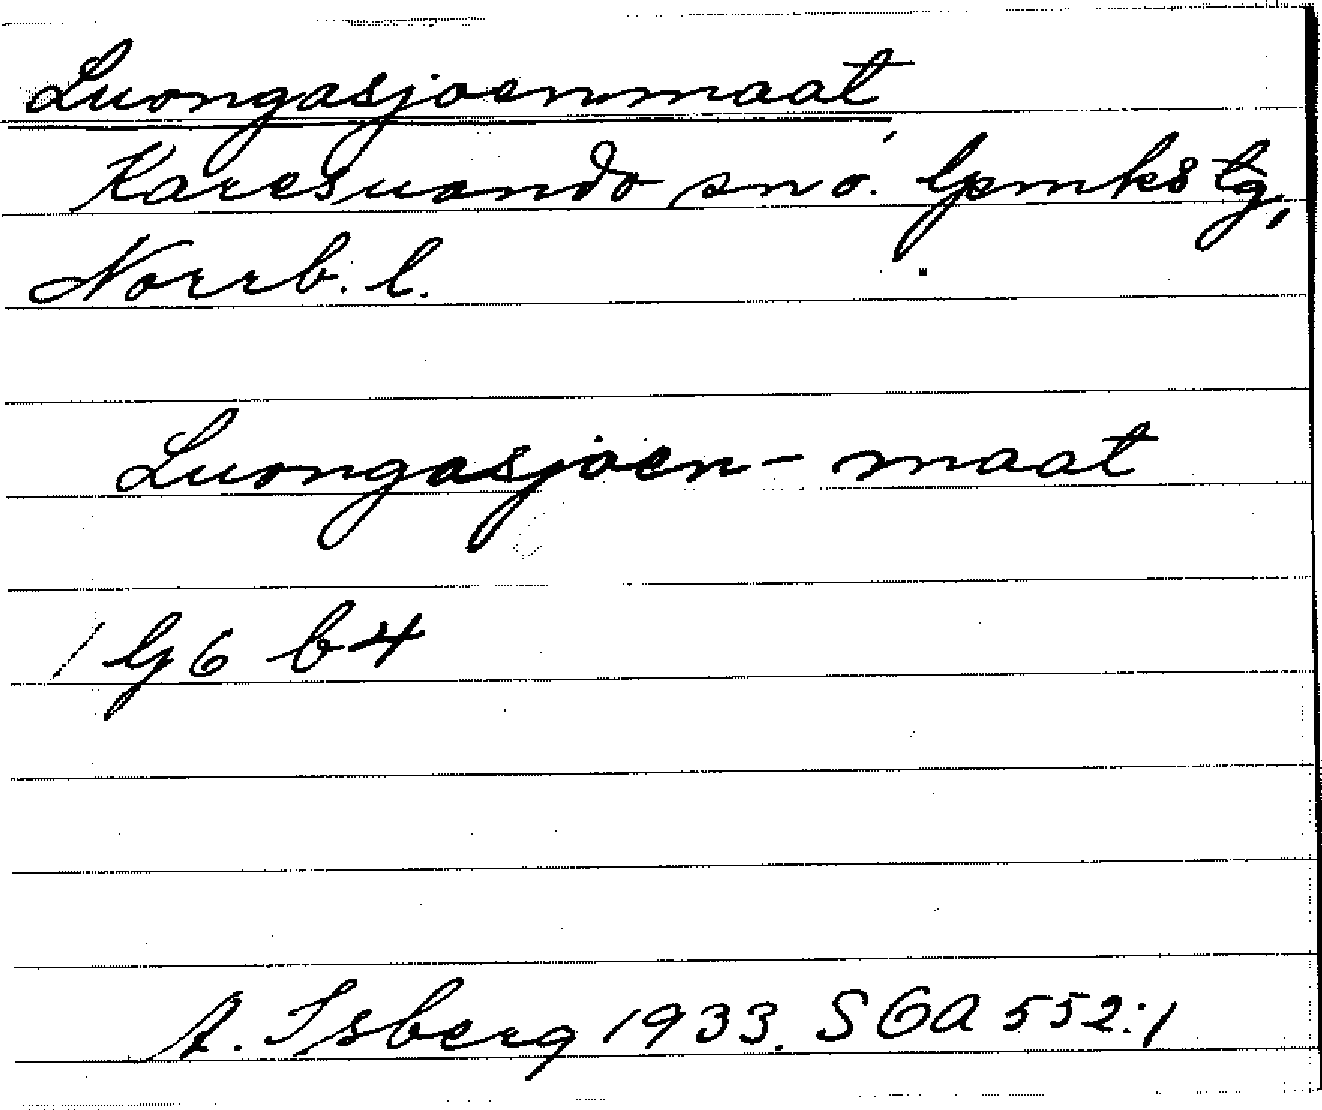 Luongasjoenmaat
Karesuando sn o. lpmkstg,
Norrb. l.
Luongasjoen-maat
1 lg 6 b 4
A. Isberg 1933. SOA 552:1